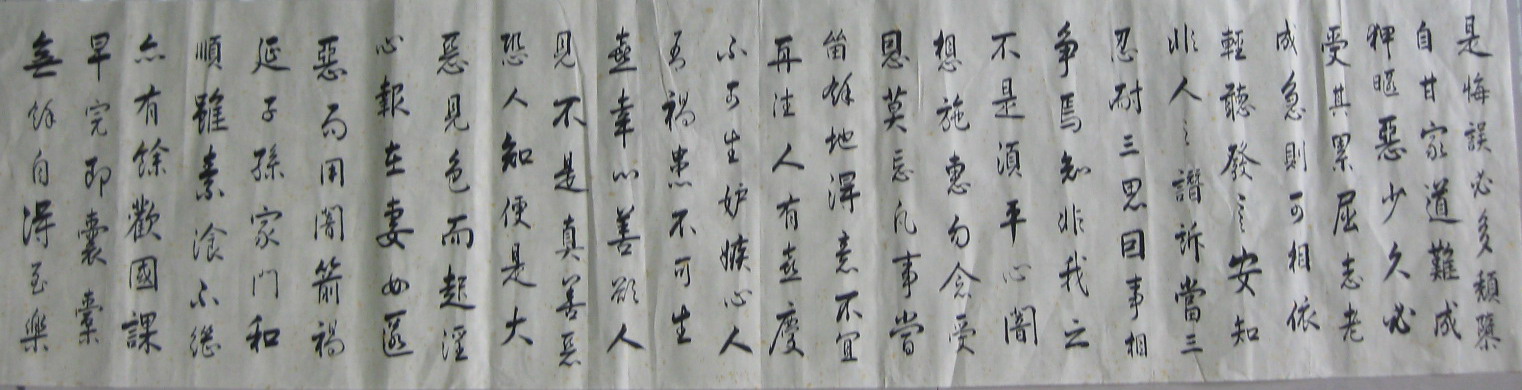 是悔誤必多頹隳
自甘家道難成
狎暱惡少久必
受其累屈志老
成急則可相依
輕聽發言安知
非人之譖訴當三
忍耐三思因事相
争焉知非我之
不是須平心闇
想施惠勿念受
恩莫忘凡事當
留餘地得意不宜
再往人有喜慶
不可生妒嫉心人
有禍患不可生
喜幸心善欲人
見不是真善惡
恐人知便是大
惡見色而起淫
心報在妻女匿
惡而用闇箭禍
延子孫家門和
順雖素飡不继
亦有餘歡國課
早完即囊橐
無餘自得至樂